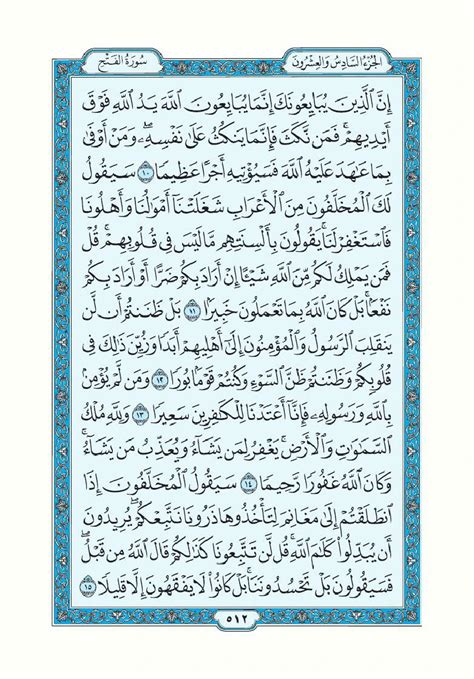 الجزء السادس والعشرون
سورة الفتح
إِنَّ ٱلَّذِينَ يُبَايِعُونَكَ إِنَّمَا يُبَايِعُونَ ٱللَّهَ يَدُ ٱللَّهِ فَوْقَ
أَيْدِيهِمْۚ فَمَن نَّكَثَ فَإِنَّمَا يَنكُثُ عَلَىٰ نَفْسِهِۦۖ وَمَنْ أَوْفَىٰ
بِمَا عَٰهَدَ عَلَيْهُ ٱللَّهَ فَسَيُؤْتِيهِ أَجْرًا عَظِيمًا ١٠ سَيَقُولُ
لَكَ ٱلْمُخَلَّفُونَ مِنَ ٱلْأَعْرَابِ شَغَلَتْنَآ أَمْوَٰلُنَا وَأَهْلُونَا
فَٱسْتَغْفِرْ لَنَاۚ يَقُولُونَ بِأَلْسِنَتِهِم مَّا لَيْسَ فِي قُلُوبِهِمْۚ قُلْ
فَمَن يَمْلِكُ لَكُم مِّنَ ٱللَّهِ شَيْـًٔا إِنْ أَرَادَ بِكُمْ ضَرًّا أَوْ أَرَادَ بِكُمْ
نَفْعَۢاۚ بَلْ كَانَ ٱللَّهُ بِمَا تَعْمَلُونَ خَبِيرَۢا ١١ بَلْ ظَنَنتُمْ أَن لَّن
يَنقَلِبَ ٱلرَّسُولُ وَٱلْمُؤْمِنُونَ إِلَىٰٓ أَهْلِيهِمْ أَبَدًا وَزُيِّنَ ذَٰلِكَ فِي
قُلُوبِكُمْ وَظَنَنتُمْ ظَنَّ ٱلسَّوْءِ وَكُنتُمْ قَوْمَۢا بُورًا ١٢ وَمَن لَّمْ يُؤْمِنۢ
بِٱللَّهِ وَرَسُولِهِۦ فَإِنَّآ أَعْتَدْنَا لِلْكَٰفِرِينَ سَعِيرًا ١٣ وَلِلَّهِ مُلْكُ
ٱلسَّمَٰوَٰتِ وَٱلْأَرْضِۚ يَغْفِرُ لِمَن يَشَآءُ وَيُعَذِّبُ مَن يَشَآءُۚ
وَكَانَ ٱللَّهُ غَفُورًا رَّحِيمًا ١٤ سَيَقُولُ ٱلْمُخَلَّفُونَ إِذَا
ٱنطَلَقْتُمْ إِلَىٰ مَغَانِمَ لِتَأْخُذُوهَا ذَرُونَا نَتَّبِعْكُمْۖ يُرِيدُونَ
أَن يُبَدِّلُوا۟ كَلَٰمَ ٱللَّهِۚ قُل لَّن تَتَّبِعُونَا كَذَٰلِكُمْ قَالَ ٱللَّهُ مِن قَبْلُۖ
فَسَيَقُولُونَ بَلْ تَحْسُدُونَنَاۚ بَلْ كَانُوا۟ لَا يَفْقَهُونَ إِلَّا قَلِيلًا ١٥
٥١٢